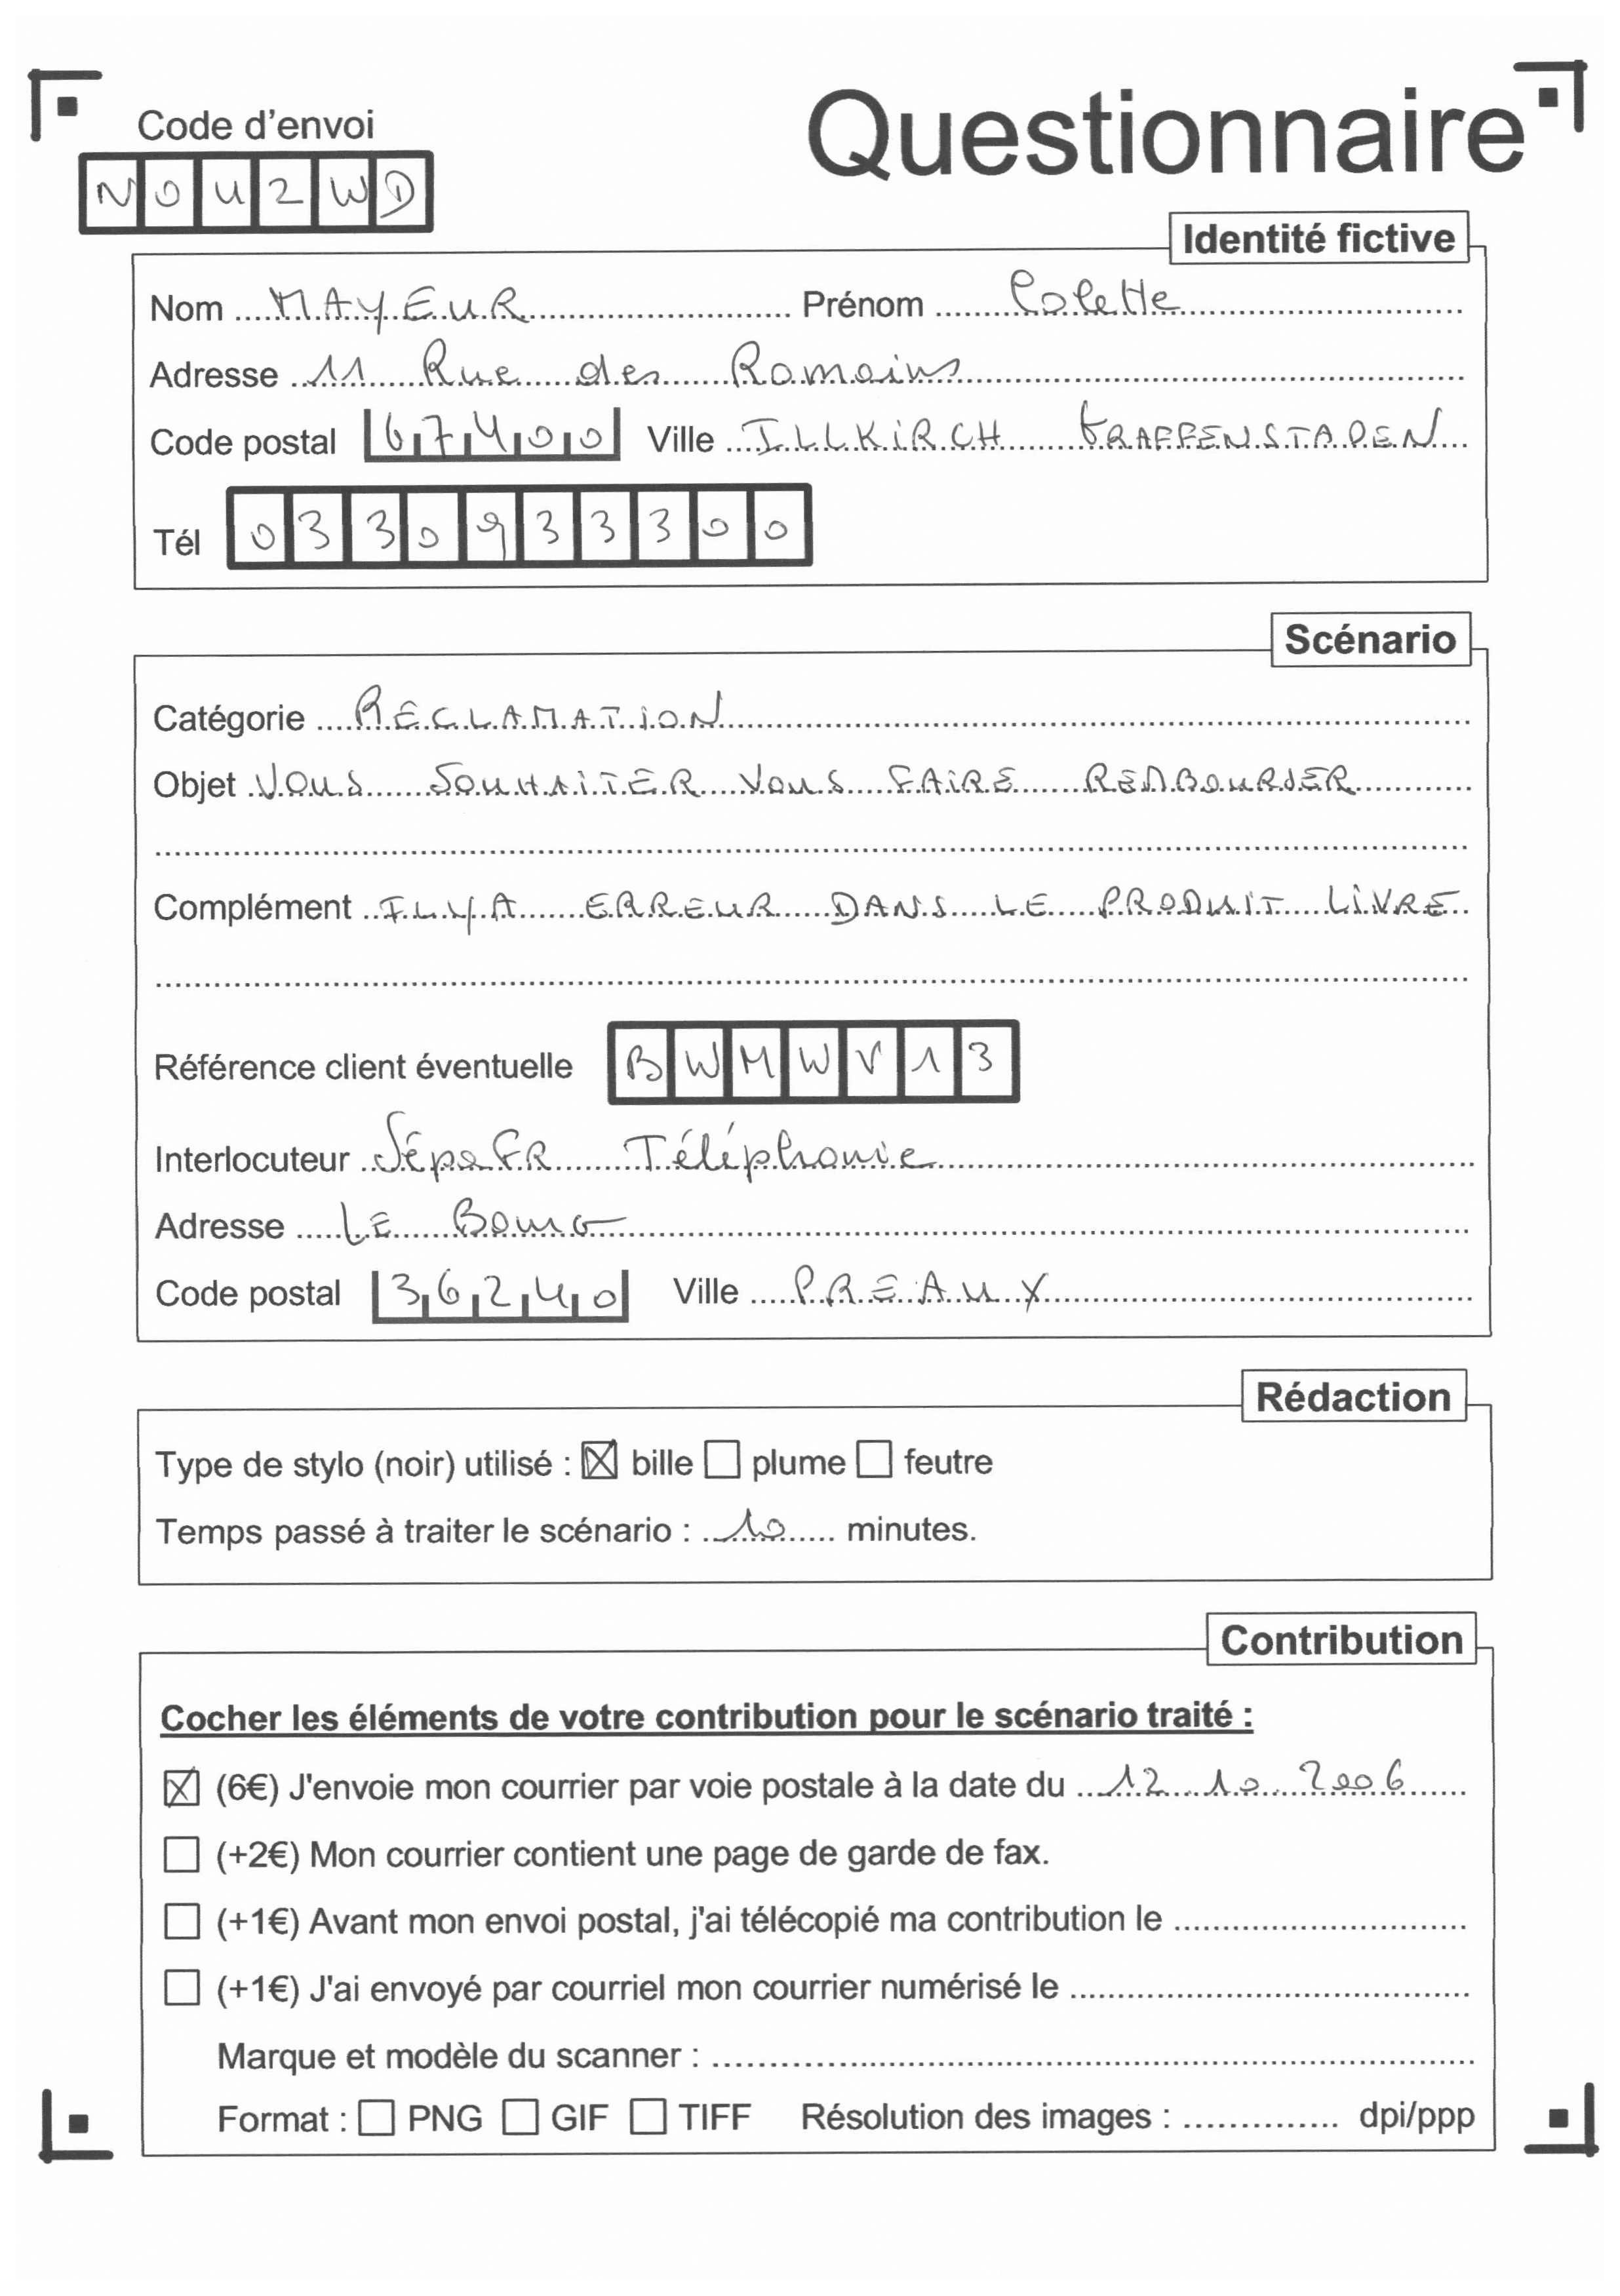 Code d'envoi
Questionnaire
NOU2WD
Identité fictive
Nom MAYEUR Prénom Colette
Adresse 11 Rue des Romains
Code postal 67400 Ville ILLKIRCH GRAFFENSTADEN
Tél 0330933300
Scénario
Catégorie RECLAMATION
Objet VOUS SOUHAITER VOUS FAIRE REMBOURSER
Complément IL Y A ERREUR DANS LE PRODUIT LIVRE
Référence client éventuelle BWMWV13
Interlocuteur SépaFR Téléphonie
Adresse LE BOURG
Code postal 36240 Ville PREAUX
Rédaction
Type de stylo (noir) utilisé : ☒ bille ☐ plume ☐ feutre
Temps passé à traiter le scénario : 10 minutes.
Contribution
Cocher les éléments de votre contribution pour le scénario traité :
☒ (6€) J'envoie mon courrier par voie postale à la date du 12.10.2006
☐ (+2€) Mon courrier contient une page de garde de fax.
☐ (+1€) Avant mon envoi postal, j'ai télécopié ma contribution le
☐ (+1€) J'ai envoyé par courriel mon courrier numérisé le
Marque et modèle du scanner :
Format : ☐ PNG ☐ GIF ☐ TIFF Résolution des images : dpi/ppp